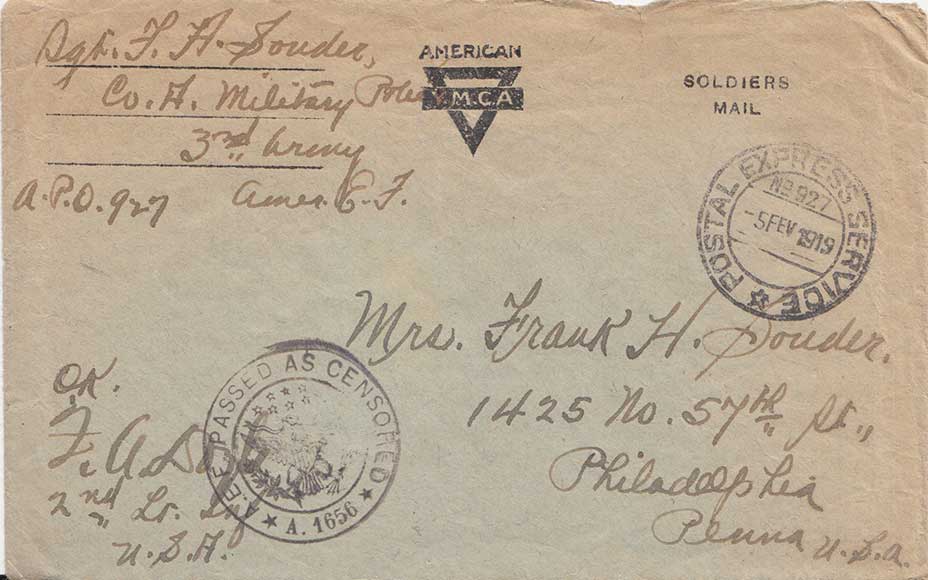 Sgt. F. H. Souder,
Co. A. Military Police
3rd Army
A.P.O. 927 Amer. E. F.
AMERICAN
Y.M.C.A
SOLDIERS
MAIL
POSTAL EXPRESS SERVICE
No 927
-5 FEV 1919
Mrs. Frank H. Souder.
1425 No. 57th St.,
Philadelphia
Penna U.S.A.
OK.
2nd Lt.
U.S.A.
A.E.F. PASSED AS CENSORED
A. 1656